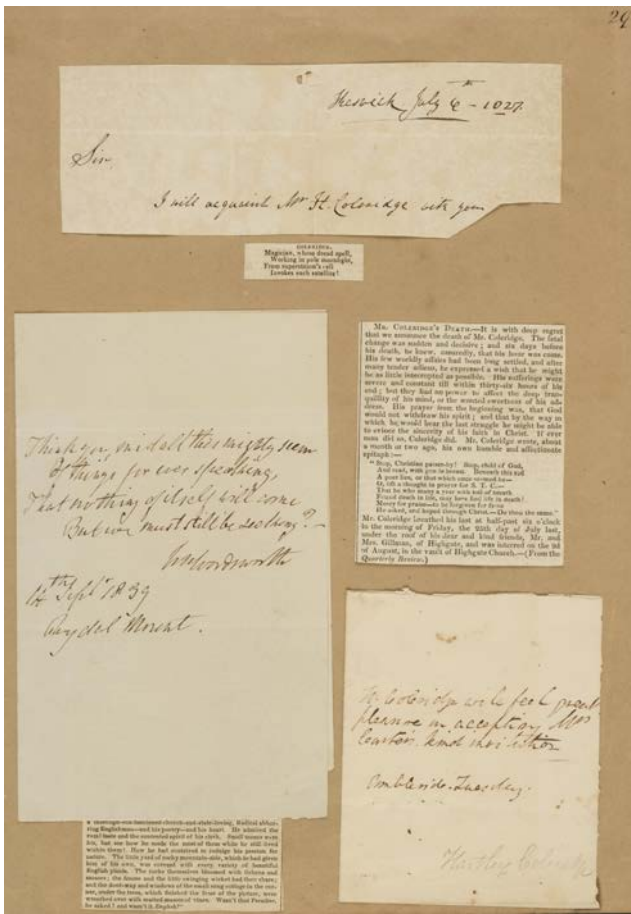 29
Keswick July 6th - 1827.
Sir,
I will acquaint Mr H. Coleridge with your
COLERIDGE.
Magician, whose dread spell,
Working in pale moonlight,
From superstition's cell
Invokes each satellite!
Think you, mid all this mighty sum
Of things for ever speaking,
That nothing of itself will come
But we must still be seeking? -
Wm Wordsworth
14th Septr 1839
Rydal Mount.
MR. COLERIDGE'S DEATH.—It is with deep regret
that we announce the death of Mr. Coleridge. The fatal
change was sudden and decisive; and six days before
his death, he knew, assuredly, that his hour was come.
His few worldly affairs had been long settled, and after
many tender adieus, he expressed a wish that he might
be as little interrupted as possible. His sufferings were
severe and constant till within thirty-six hours of his
end; but they had no power to affect the deep tran-
quillity of his mind, or the wonted sweetness of his ad-
dress. His prayer from the beginning was, that God
would not withdraw his spirit; and that by the way in
which he would bear the last struggle he might be able
to evince the sincerity of his faith in Christ. If ever
man did so, Coleridge did. Mr. Coleridge wrote, about
a month or two ago, his own humble and affectionate
epitaph:—
"Stop, Christian passer-by! Stop, child of God,
And read, with gentle breast. Beneath this sod
A poet lies, or that which once seemed he—
O, lift a thought in prayer for S. T. C.—
That he who many a year with toil of breath
Found death in life, may here find life in death!
Mercy for praise—to be forgiven for fame
He asked, and hoped through Christ.—Do thou the same."
Mr. Coleridge breathed his last at half-past six o'clock
in the morning of Friday, the 25th day of July last,
under the roof of his dear and kind friends, Mr. and
Mrs. Gillman, of Highgate, and was interred on the 2d
of August, in the vault of Highgate Church.—(From the
Quarterly Review.)
H. Coleridge will feel great
pleasure in accepting Mrs
kind invitation
Ambleside. Tuesday.
Hartley Coleridge
a thorough-going church-and-state-loving, Radical abhor-
ring Englishman—and his poetry—and his heart. He admired the
rural taste and the contented spirit of his clerk. Small means were
his, but see how he made the most of them while he still lived
within them! How he had contrived to indulge his passion for
nature. The little yard of rocky mountain-side, which he had given
him of his own, was covered with every variety of beautiful
English plants. The rocks themselves blossomed with
the house and the little swinging wicket had their share;
and the door-way and windows of the small snug cottage in the cor-
ner, under the trees, which finished the front of the picture, were
wreathed over with masses of vines. Wasn't that Paradise,
he asked? and wasn't it English?"